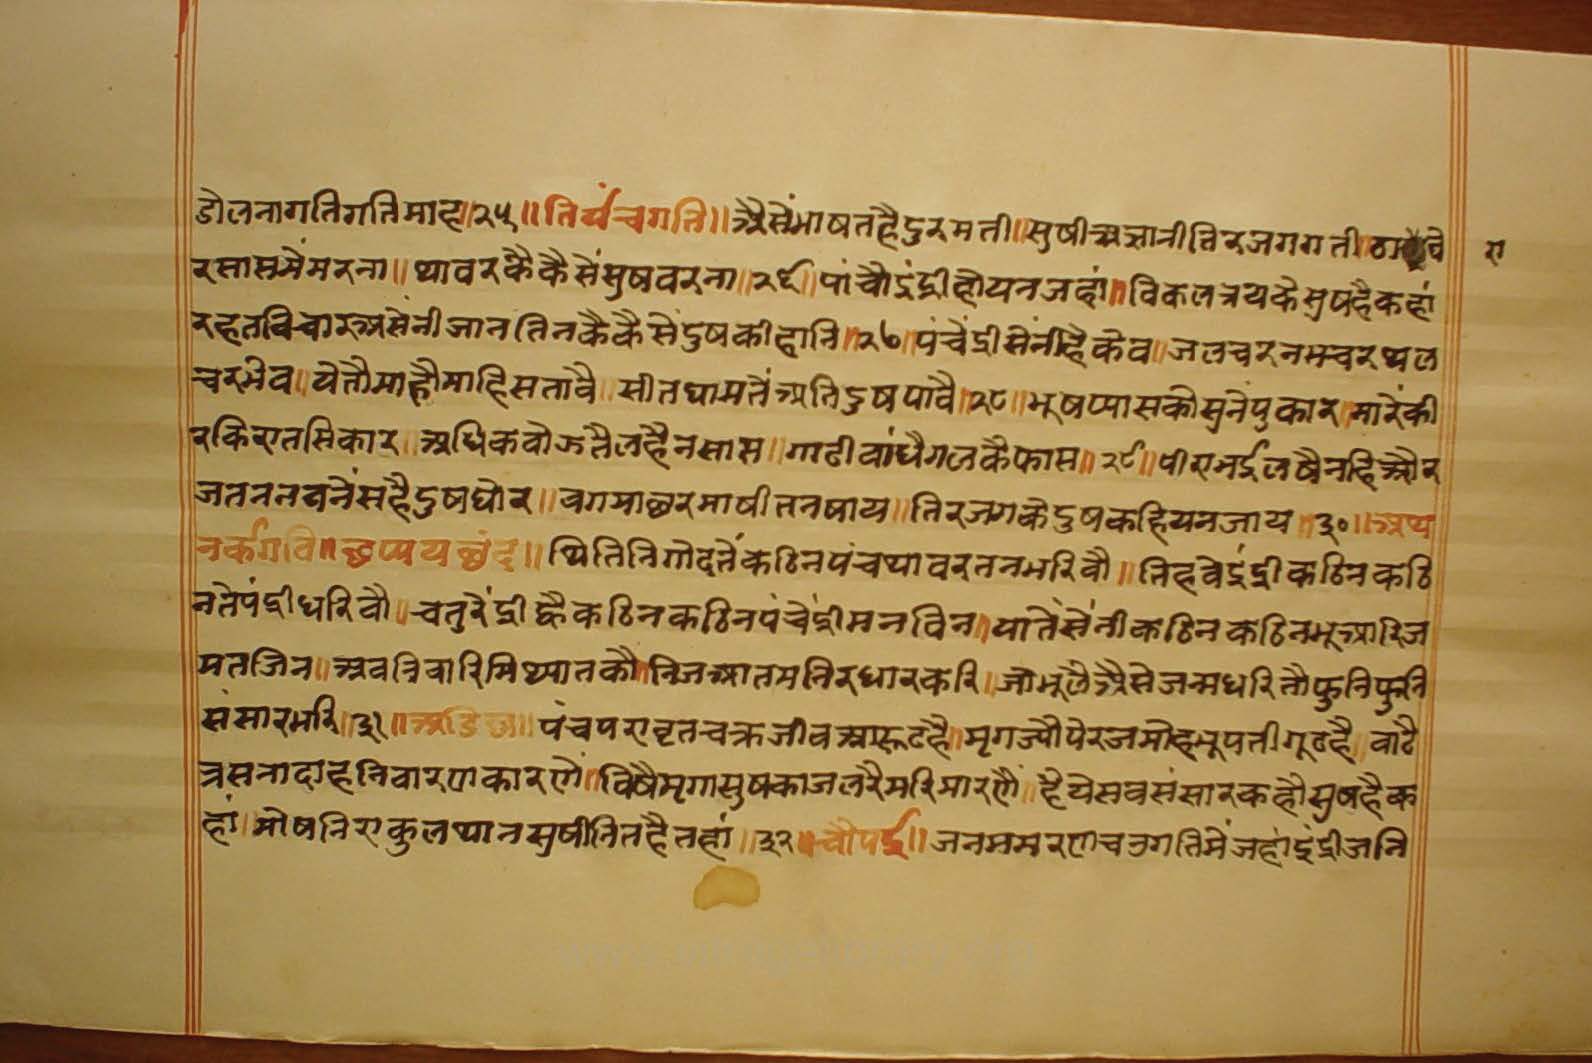 डोलनागतिगतिमाह॥२५॥तिर्यंचगति॥अैसेंभाषतहैदुरमती॥सुषीअज्ञानीतिरजगगती॥ठा वे
रसासमैंमरना॥थावरकैकैसेंसुषवरना॥२६॥पांचौइंद्रीहोयनजहां॥विकलत्रयकैसुषहैकहां
रहतविचारअसेंनीजानतिनकैकैसेंदुषकीहानि॥२७॥पंचेंद्रीसेंनीहैकेव॥जलचरनभचरथल
चरभेव॥येतौमाहौमाहिसतावै॥सीतघामतेंअतिदुषपावै॥२८॥भूषप्यासकौसुनेंपुकार॥मारेंकी
रकिरातसिकार॥अधिकवोझतैलहैनसास॥गाढीवांधैगलकैफास॥२९॥पीरामईलषैनहिऔर
जतननवनेंसहैदुषघोर॥वगमाछरमाषीतनषाय॥तिरजगकेदुषकहियनजाय॥३०॥अथ
नर्कगति॥छप्पयछंद॥थितिनिगोदतेंकठिनपंचथावरतनमरिवौ॥तिहवेइंद्रीकठिनकठि
नतेपंद्रीधरिवौ॥चतुरेंद्रीह्वैकठिनकठिनपंचेंद्रीमनविन॥यातेंसेंनीकठिनकठिनभूआरिज
मतजिन॥अवनिवारिमिथ्यातकौ॥निजआतमनिरधारकरि॥जोभूलैअैसेजन्मधरितौफुनिफुनि
संसारभरि॥३१॥अडिल॥पंचपरावृतचक्रजीवआरूढहै॥मृगज्यौपेरजमोहभूपतीगूढहै॥वाढै
त्रसनादाहनिवारणकारणें॥विषैमृगासुषकाजलरैमरिमारणें॥हैयेसवसंसारकहौसुषहैक
हां॥मोषनिराकुलथानसुषीनितहैतहां॥३२॥चौपई॥जनममरणचउगतिमेंजहांइंद्रीजनि